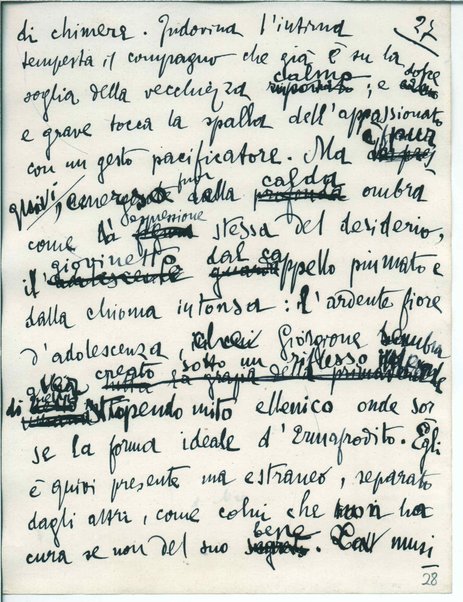 27
di chimera. Indovina l'interna
tempesta il compagno che già è su la
soglia della vecchiezza calmo; e sopre
e grave tocca la spalla dell'appassionato
con un gesto pacificatore. Ma eppur
quivi, emerge pur dalla calda ombra
come la espressione stessa del desiderio,
il giovinetto dal cappello piumato e
dalla chioma intonsa: l'ardente fiore
d'adolescenza, Giorgione sembra
aver creato sotto un riflesso
di stupendo mito ellenico onde sor
se la forma ideale d'Ermafrodito. Egli
è quivi presente ma estraneo, separato
dagli altri, come colui che non ha
cura se non del suo bene. La musi
28